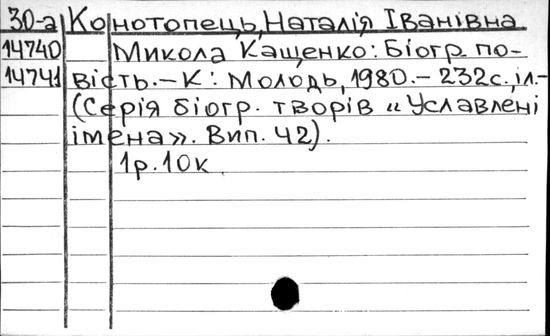 30-а Конотопець, Наталія Іванівна
14740 Микола Кащенко: Біогр. по-
14741 вість.– К: Молодь, 1980.– 232с., іл.–
(Серія біогр. творів "Уславлені
імена". Вип. 42).
1р. 10к